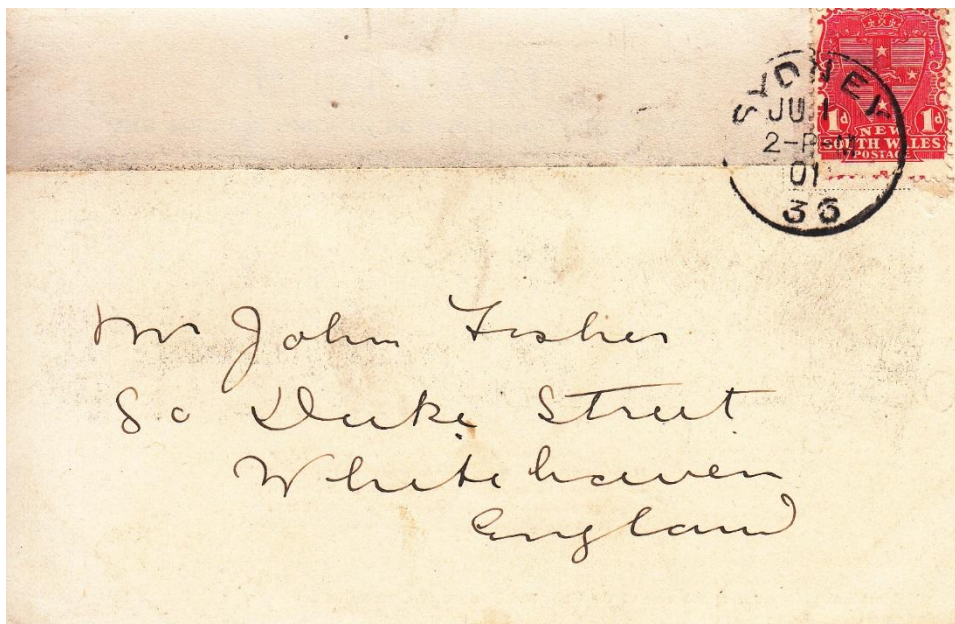 SYDNEY
JU 1
2-P M
01
33
1d 1d
NEW
SOUTH WALES
POSTAGE
Mr John Fisher
80 Duke Street
Whitehaven
England